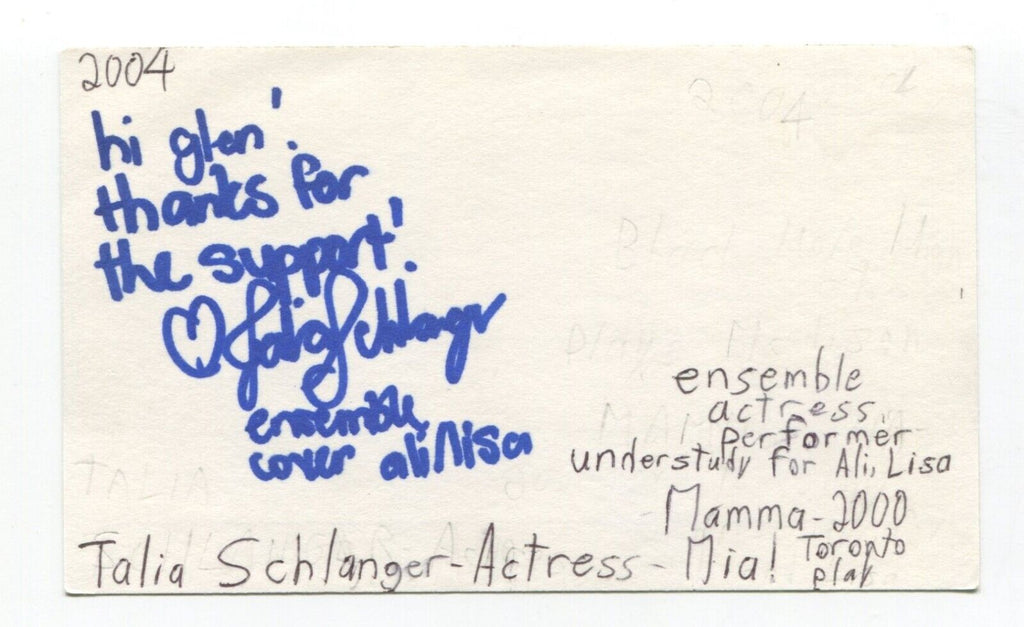 2004
hi glen!
thanks for
the support!
♡ Talia Schlanger
ensemble
cover ali/lisa
ensemble
actress
performer
understudy for Ali, Lisa
Mamma - 2000
Talia Schlanger - Actress - Mia! Toronto
play
2004
TALIA